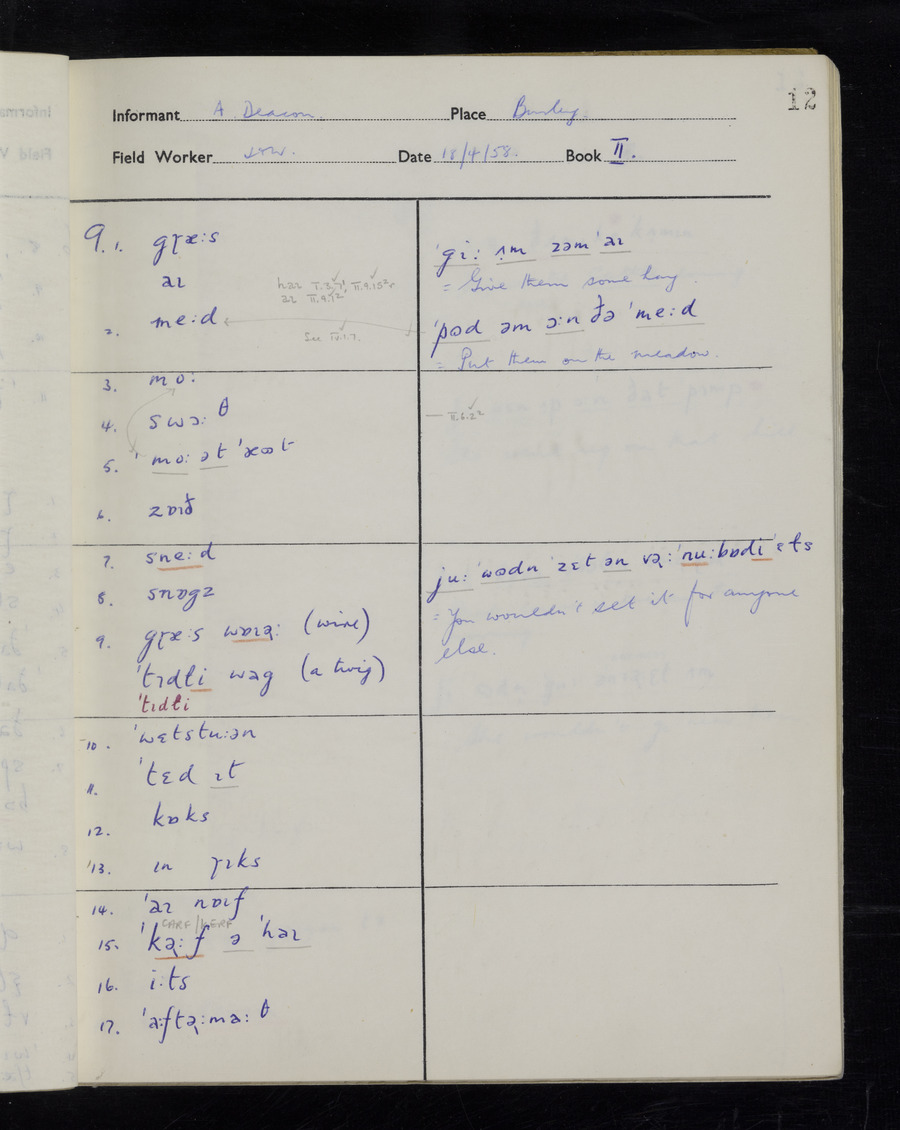 12
Informant A Deacon Place Burley
Field Worker Date 18/4/58. Book II.
9. 1. gɽæ:s
aɪ
haɪ I.3.7¹, II.9.15²,
aɪ II.9.12¹
2. me:d
See IV.1.7.
3. mo:
4. swɔ: θ
5. ˈmo: ət ˈæʊt
6. zɒɪð
7. sne:d
8. snɒgz
9. gɽæ:s wɒɪə̢: (wire)
ˈtɪdɫi wəg (a twig)
ˈtɪdɫi
10. ˈwɛtstu:ən
11. ˈtɛd ɪt
12. kɒks
13. ɪn ɽɪks
14. ˈaɪ nɒɪf
CARF/KERF
15. ˈkə̢:f ə ˈhaɪ
16. i:ts
17. ˈa:ftə̢:ma: θ
ˈgi: əm zəmˈaɪ
= Give them some hay.
ˈpʊd əm ɔ:n ðə ˈme:d
= Put them on the meadow.
— II.6.2²
ju: ˈwʊdn ˈzɛt ən və̢: ˈnu:bɒdi ˈɛɫs
= You wouldn't set it for anyone
else.